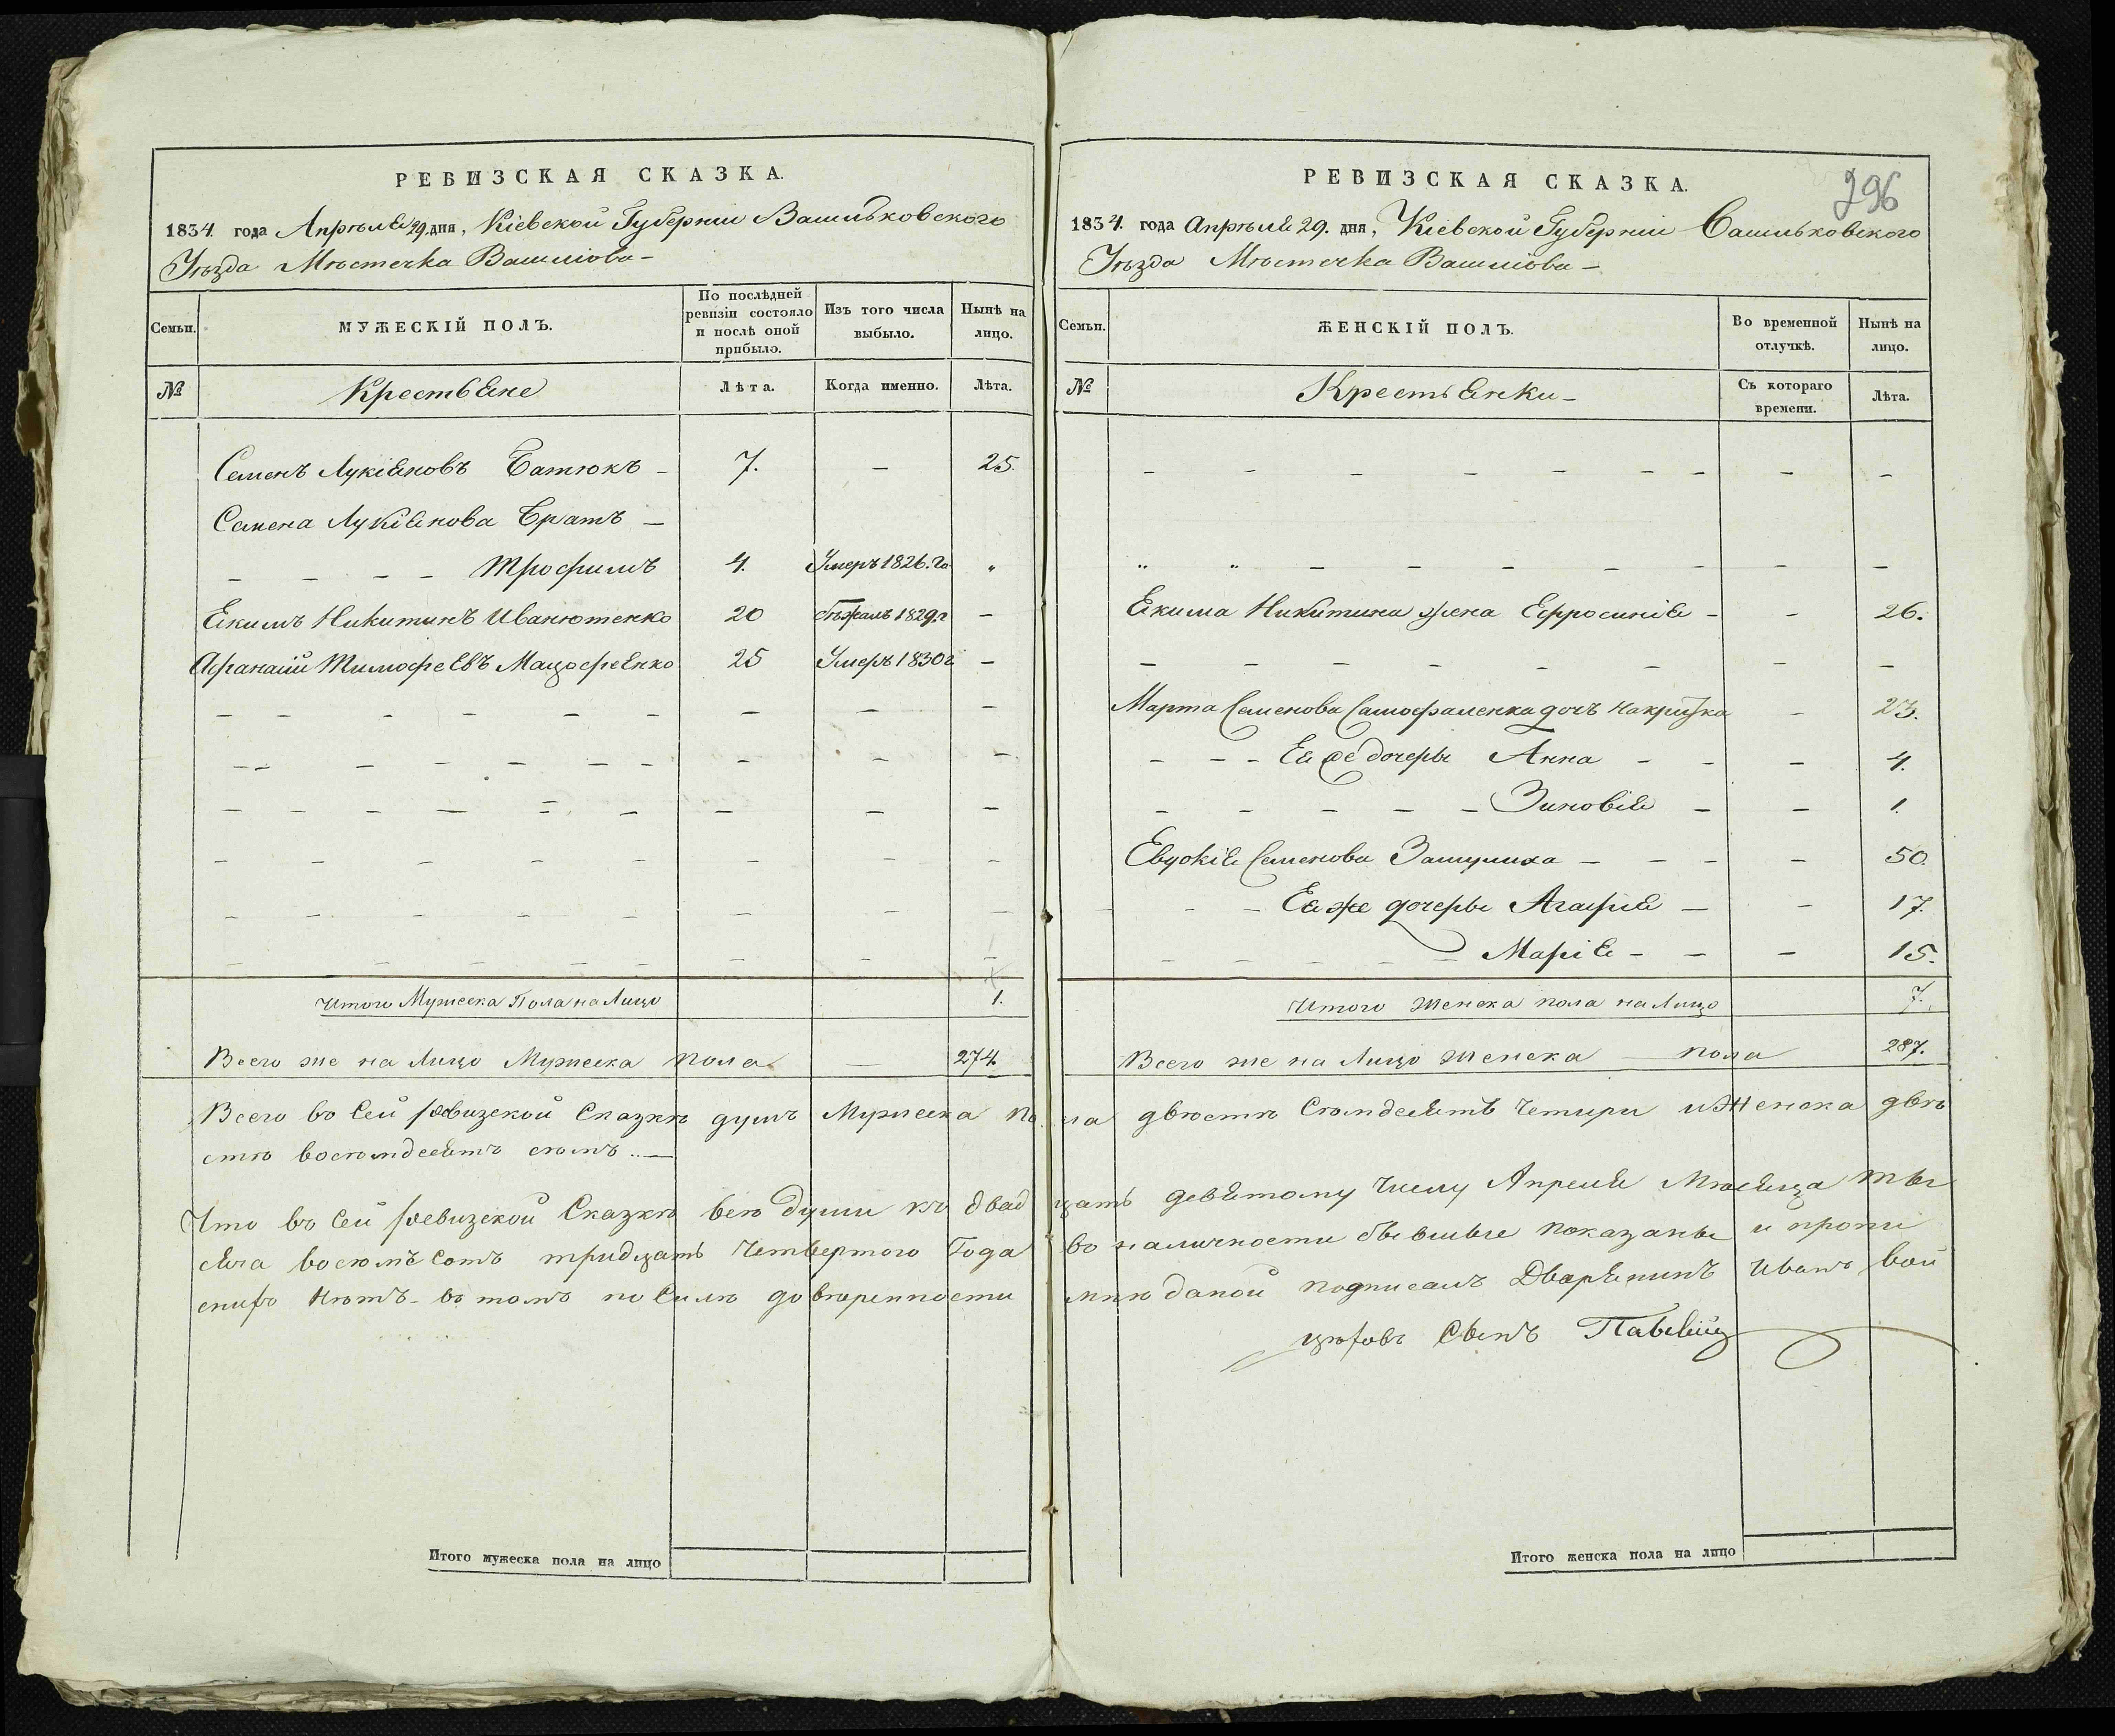 РЕВИЗСКАЯ СКАЗКА.
1834. года Апрѣля 29. дня, Кіевской Губерніи Васильковского
Уѣзда Мѣстечка
Семьи.
МУЖЕСКІЙ ПОЛЪ.
По послѣдней ревизіи состояло и послѣ оной прибыло.
Изъ того числа выбыло.
Нынѣ на лицо.
№
Крестьяне
Лѣта.
Когда именно.
Лѣта.
Семенъ Лукіяновъ Батюкъ – 7. – 25.
Семена Лукіянова Братъ –
– – – – Трофимъ 4. Умеръ 1826. го „
Екимъ Никитинъ Иванютенко 20 бѣжалъ 1829. г –
Афанасій Тимофеевъ 25 Умеръ 1830 г –
Итого Мужеска Пола на Лицо 1.
Всего же на Лицо Мужеска пола – 274.
РЕВИЗСКАЯ СКАЗКА.
296
1834. года Апрѣля 29. дня, Кіевской Губерніи Васильковского
Уѣзда Мѣстечка
Семьи.
ЖЕНСКІЙ ПОЛЪ.
Во временной отлучкѣ.
Нынѣ на лицо.
№
Крестьянки –
Съ котораго времени.
Лѣта.
Екима Никитина жена Ефросинія – – 26.
Марта Семенова дочъ – 23.
– – – Ея же дочеры Анна – – – 4.
– – – – – Зиновія – – 1.
Евдокія Семенова – – – – 50.
– – Ея же дочеры Агафія – – 17.
– – – – – Марія – – – 15.
Итого Женска пола на Лицо 7.
Всего же на Лицо Женска – пола 287.
Всего во Сей ревизской Сказкѣ душъ Мужеска пола двѣстѣ Сѣмдесятъ Четири и Женска двѣ
стѣ восѣмдесятъ сѣмъ .. –
Что въ Сей ревизской Сказкѣ всѣ души къ двадцать девятому Числу Апреля Мѣсяца ты
сяча восѣмъ сотъ тридцать Четвертого Года во наличности бывшые показаны и пропи
сныхъ Нѣтъ – въ томъ по Силѣ довѣренности мнѣ даной подписалъ Дворянинъ Иванъ Вой
цѣховъ Сынъ
Итого мужеска пола на лицо
Итого женска пола на лицо